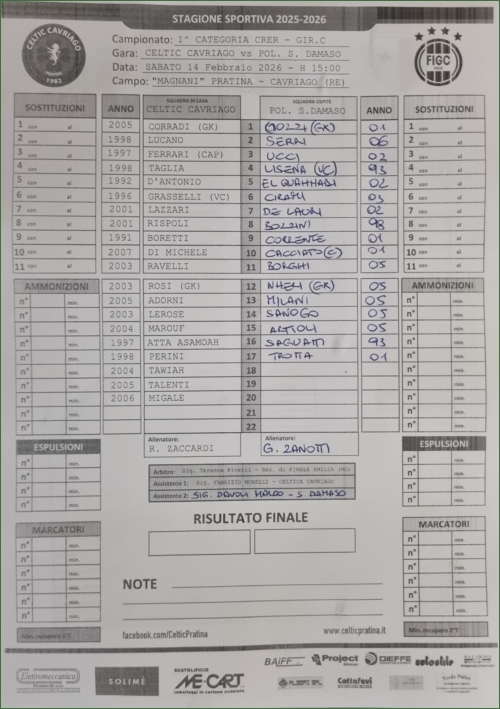 STAGIONE SPORTIVA 2025-2026
CELTIC CAVRIAGO
PRATINA
1983
FIGC
Campionato: 1^ CATEGORIA CRER - GIR.C
Gara: CELTIC CAVRIAGO vs POL. S. DAMASO
Data: SABATO 14 Febbraio 2026 - H 15:00
Campo: "MAGNANI" PRATINA - CAVRIAGO (RE)
SOSTITUZIONI ANNO SQUADRA DI CASA CELTIC CAVRIAGO SQUADRA OSPITE POL. S.DAMASO ANNO SOSTITUZIONI
1 con al 2005 CORRADI (GK) 1 (GK) 01 1 con al
2 con al 1998 LUCANO 2 SERRI 06 2 con al
3 con al 1997 FERRARI (CAP) 3 UCCI 02 3 con al
4 con al 1998 TAGLIA 4 LISENA (VC) 93 4 con al
5 con al 1992 D'ANTONIO 5 EL QUAHHADI 02 5 con al
6 con al 1996 GRASSELLI (VC) 6 03 6 con al
7 con al 2001 LAZZARI 7 DE LAURI 02 7 con al
8 con al 2001 RISPOLI 8 BOZZINI 98 8 con al
9 con al 1991 BORETTI 9 CORRENTE 01 9 con al
10 con al 2007 DI MICHELE 10 CACCIATO (C) 01 10 con al
11 con al 2003 RAVELLI 11 BORGHI 05 11 con al
AMMONIZIONI 2003 ROSI (GK) 12 (GK) 05 AMMONIZIONI
n° min. 2005 ADORNI 13 MILANI 05 n° min.
n° min. 2003 LEROSE 14 SANOGO 05 n° min.
n° min. 2004 MAROUF 15 ARTIOLI 05 n° min.
n° min. 1997 ATTA ASAMOAH 16 93 n° min.
n° min. 1998 PERINI 17 TROTTA 01 n° min.
n° min. 2004 TAWIAH 18 n° min.
n° min. 2005 TALENTI 19 n° min.
n° min. 2006 MIGALE 20 n° min.
n° min. 21 n° min.
n° min. 22 n° min.
ESPULSIONI Allenatore: R. ZACCARDI Allenatore: G. ZANOTTI ESPULSIONI
n° min. Arbitro: Sig. Terenzo - Sez. di FINALE EMILIA (MO) n° min.
n° min. Assistente 1: Sig. FABRIZIO MORELLI - CELTICA CAVRIAGO n° min.
n° min. Assistente 2: SIG. DAVOLI - S DAMASO n° min.
n° min. n° min.
RISULTATO FINALE
MARCATORI MARCATORI
n° min. n° min.
n° min. n° min.
n° min. n° min.
n° min. NOTE n° min.
n° min. n° min.
n° min. n° min.
Min. recupero 1°T facebook.com/CelticPratina www.celticpratina.it Min. recupero 1°T
Elettromeccanica
SOLIMÈ
SCATOLIFICIO
ME-CART
imballaggi in cartone ondulato
BAIFF
Project
DIEFFE
Cottafavi